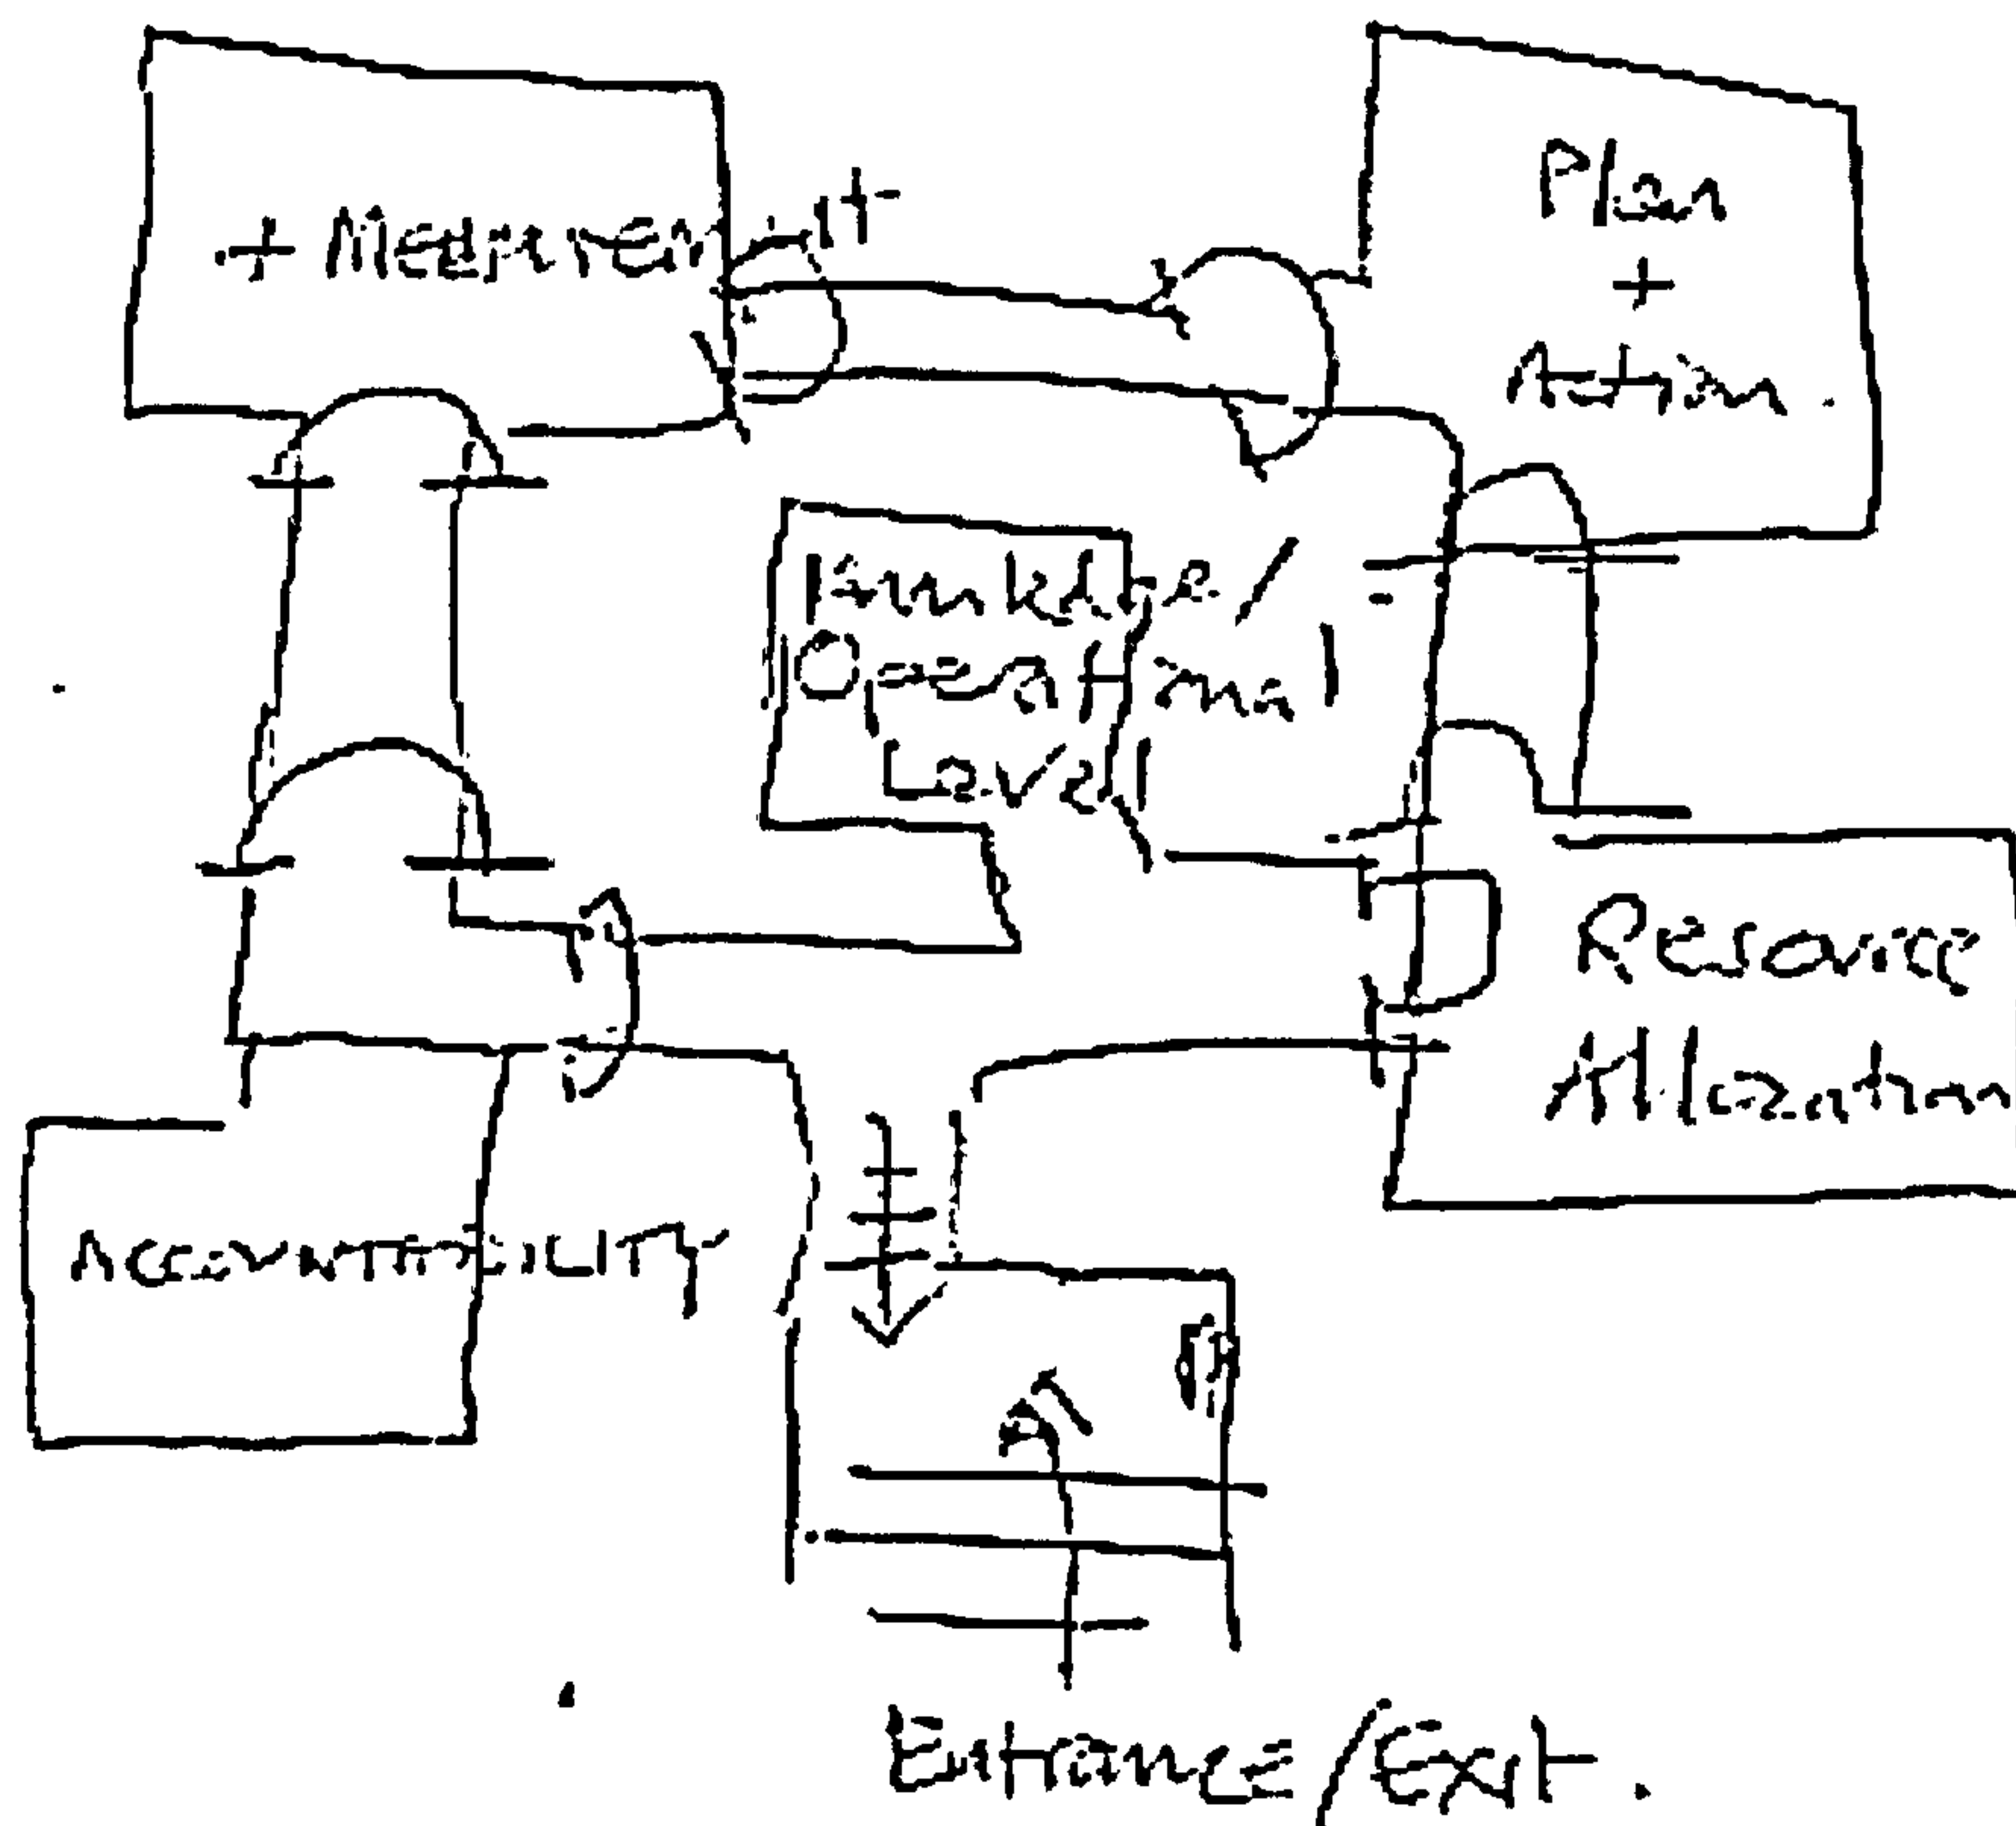 + Measurement
Plan
+
Action
Operational
Level
Resource
Allocation
ACCOUNTABILITY
Entrance/Exit.